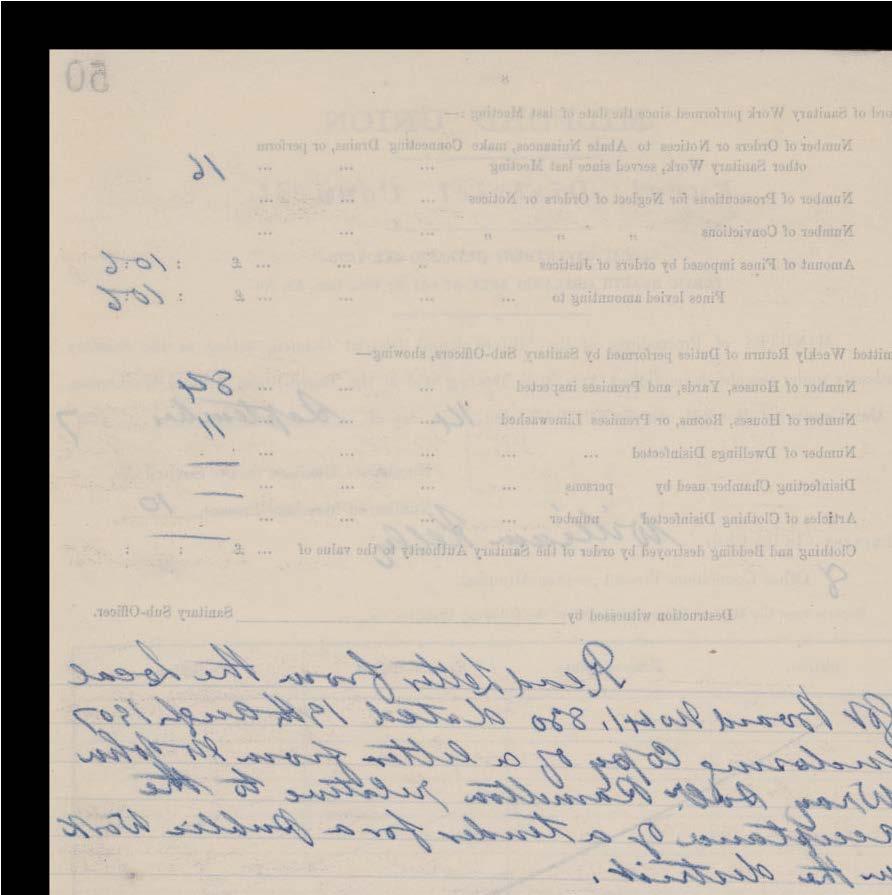 50
8
ord of Sanitary Work performed since the date of last Meeting :—
Number of Orders or Notices to Abate Nuisances, make Connecting Drains, or perform
other Sanitary Work, served since last Meeting ... ... ... 16
Number of Prosecutions for Neglect of Orders or Notices ... ... ...
Number of Convictions „ „ „ ... ... ...
Amount of Fines imposed by orders of Justices ... ... ... £ : 10 : 6
Fines levied amounting to ... ... ... ... £ : 10 : 6
mitted Weekly Return of Duties performed by Sanitary Sub-Officers, showing—
Number of Houses, Yards, and Premises inspected ... ... ... 84
Number of Houses, Rooms, or Premises Limewashed ... ... ... 11
Number of Dwellings Disinfected ... ... ... ... ...
Disinfecting Chamber used by persons ... ... ... ...
Articles of Clothing Disinfected number ... ... ... ...
Clothing and Bedding destroyed by order of the Sanitary Authority to the value of ... £ : :
Destruction witnessed by Sanitary Sub-Officer.
Read letter from the Local
Gov Board No 41,830 dated 19th Augt 1907
enclosing Copy of a letter from Mr John
Wray Solr Ramelton relative to the
acceptance of a tender for a public work
in the district.